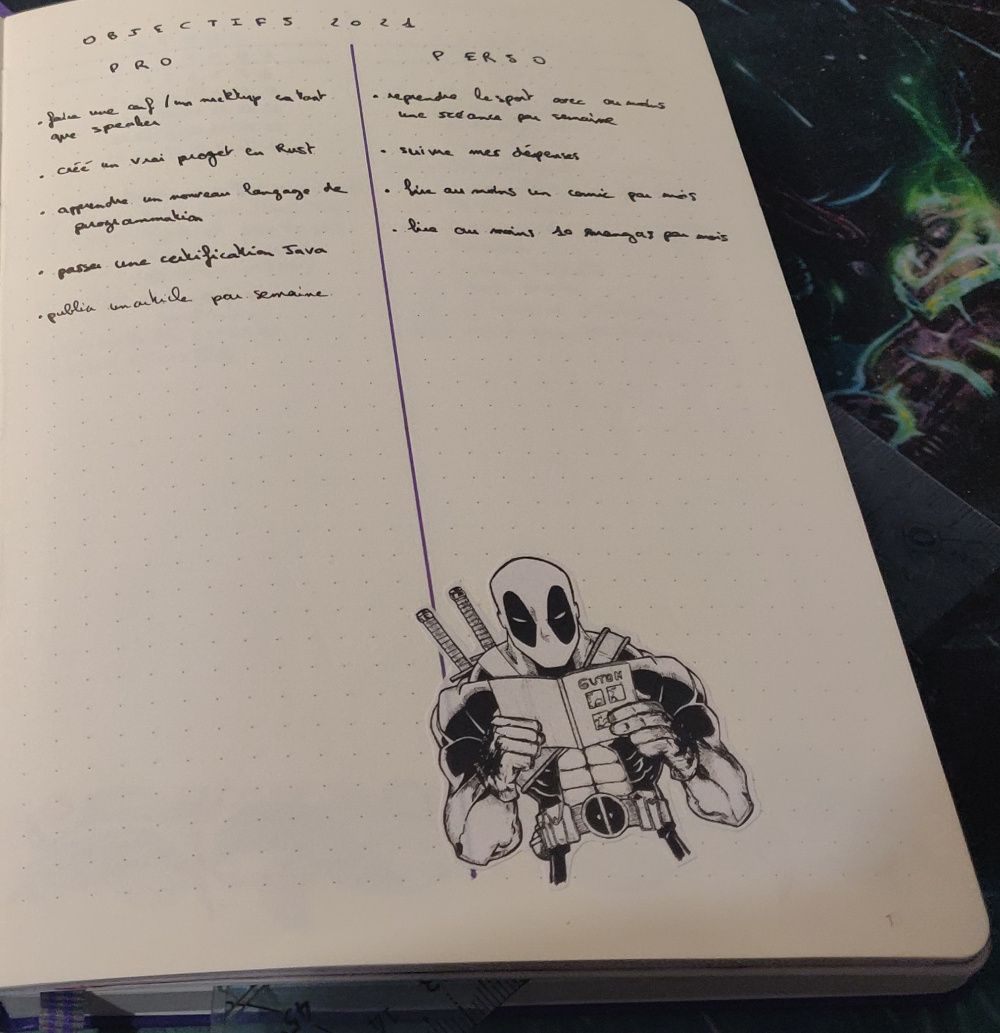 OBJECTIFS 2021
PRO
• faire une conf / un meetup en tant
que speaker
• créé un vrai projet en Rust
• apprendre un nouveau langage de
programmation
• passer une certification Java
• publier un article par semaine
PERSO
• reprendre le sport avec au moins
une scéance par semaine
• suivre mes dépenses
• lire au moins un comic par mois
• lire au moins 10 mangas par mois
1
45